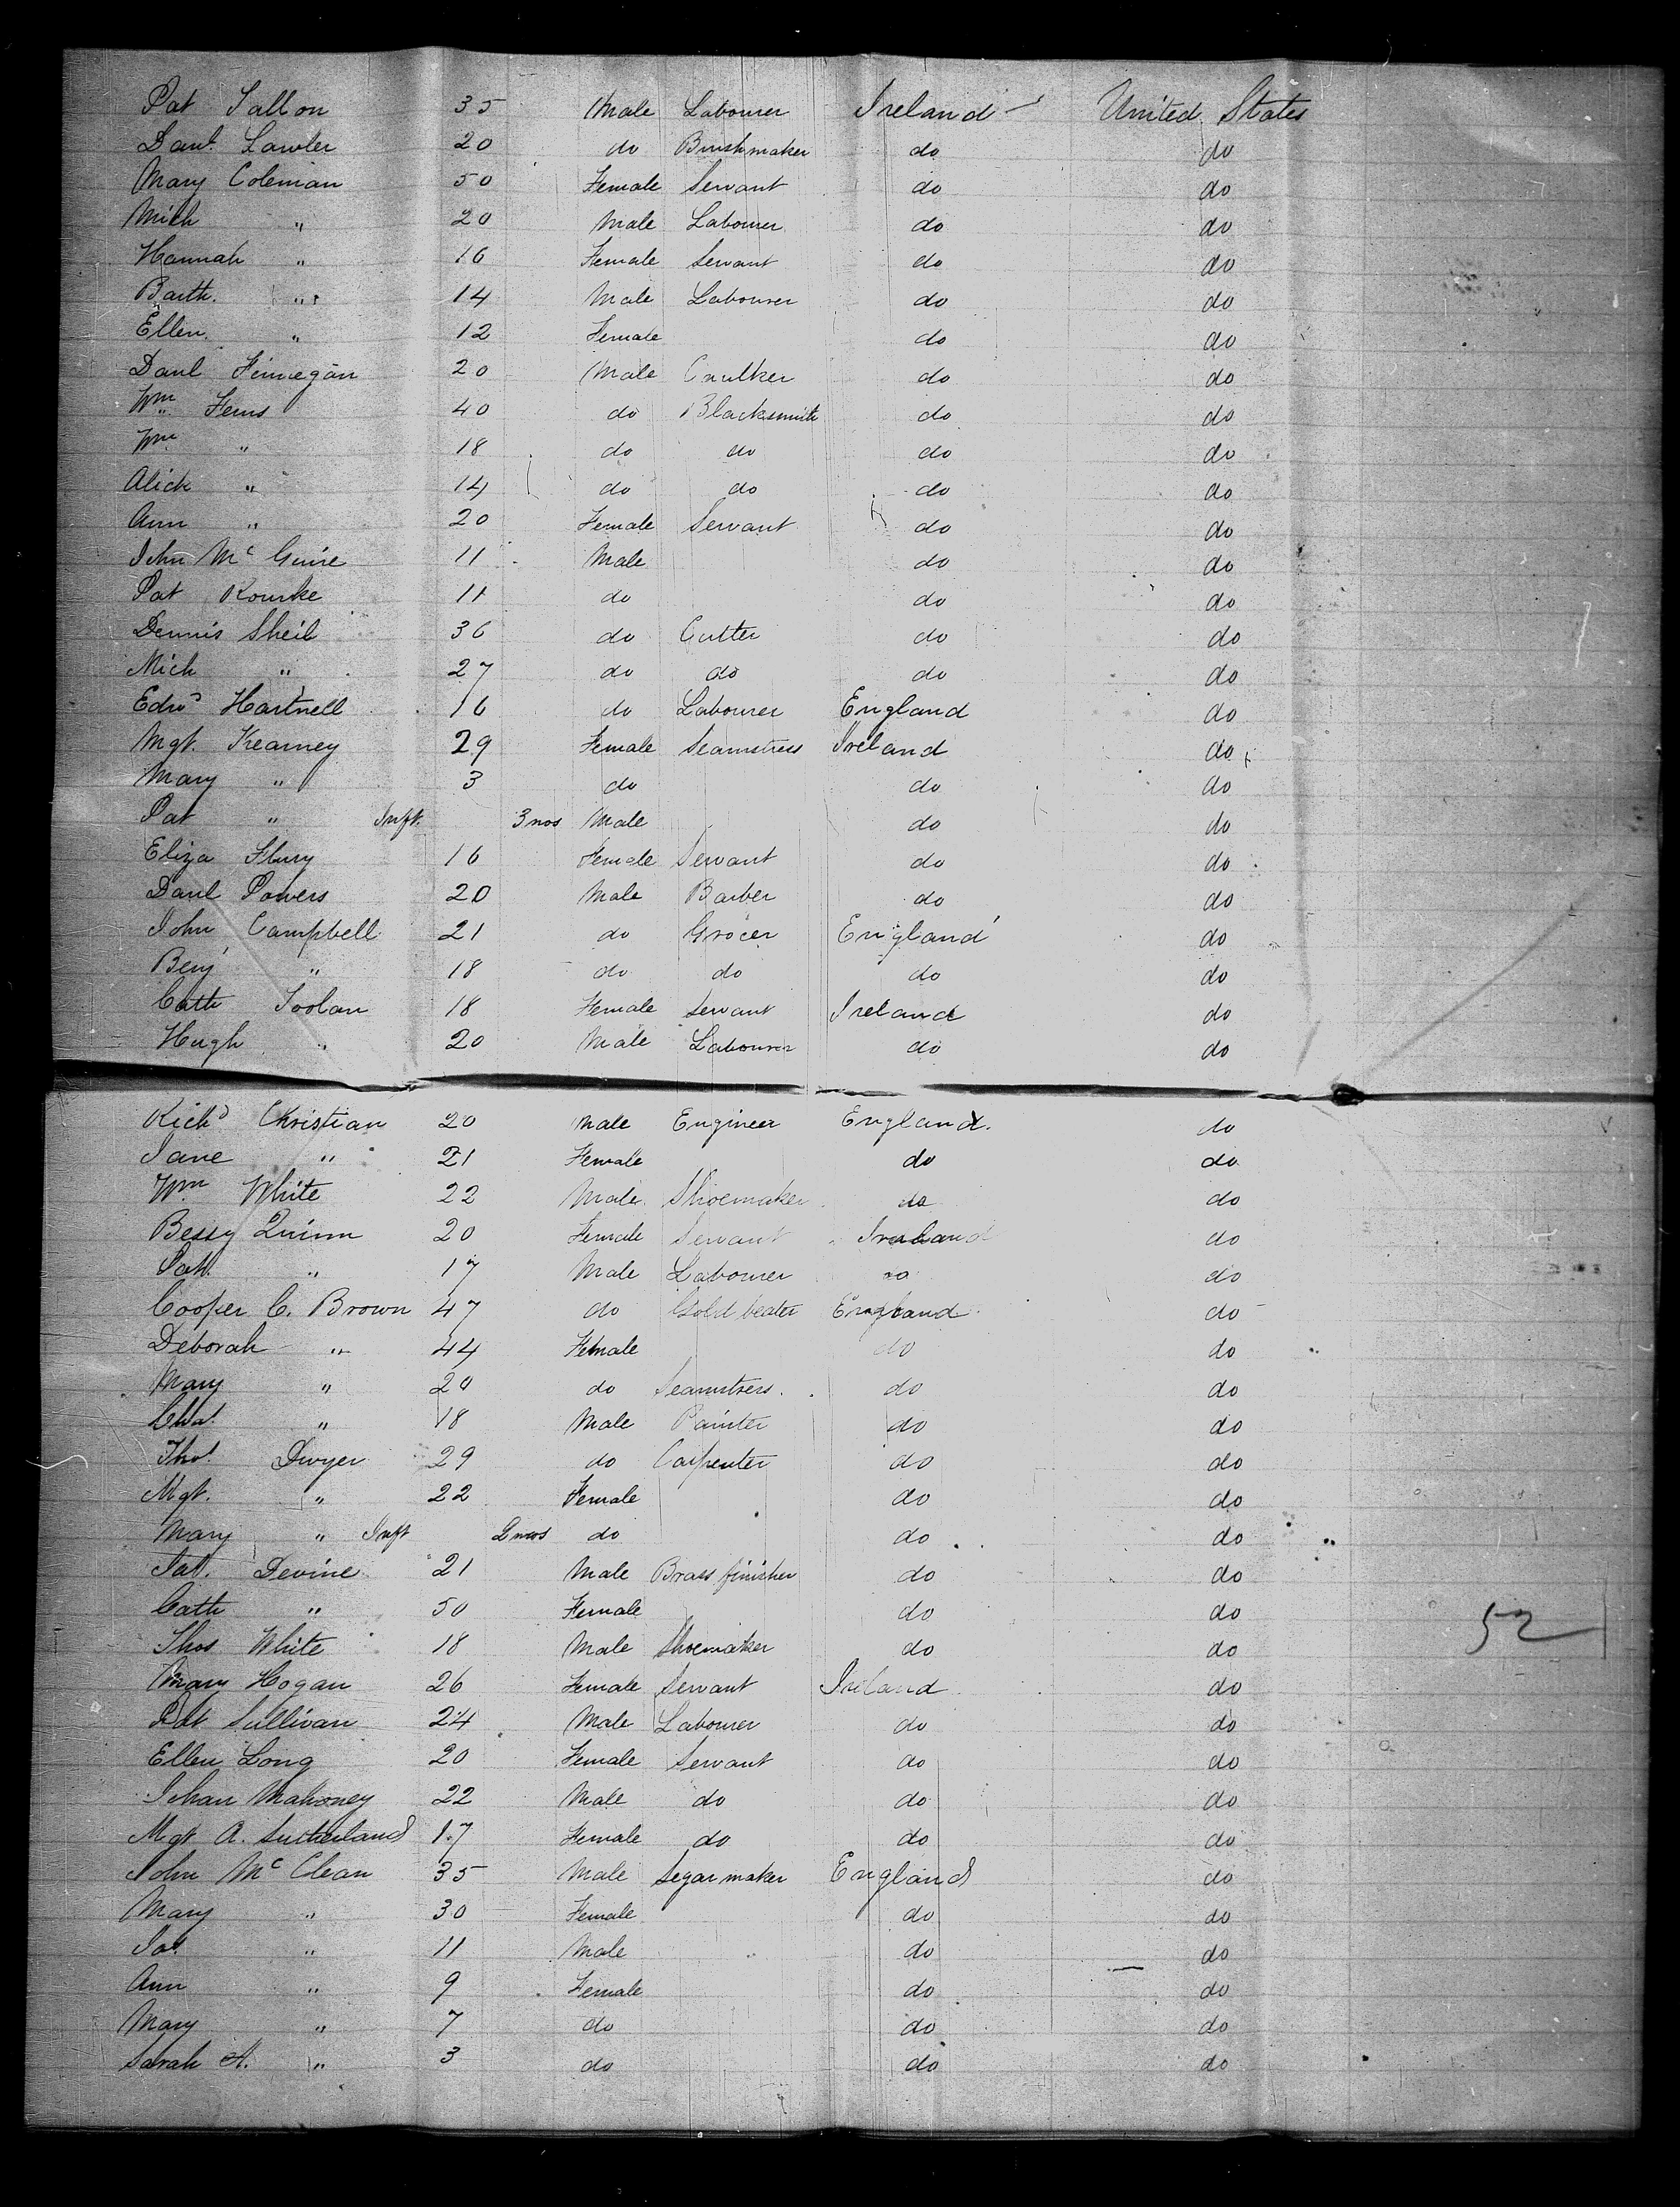 Pat Tallon 35 Male Labourer Ireland United States
Danl. Lawler 20 do Brushmaker do do
Mary Coleman 50 Female Servant do do
Mich " 20 Male Labourer do do
Hannah " 16 Female Servant do do
Barth. " 14 Male Labourer do do
Ellen " 12 Female do do
Danl Finnegan 20 Male Caulker do do
Wm Ferns 40 do Blacksmith do do
Wm " 18 do do do do
Alick " 14 do do do do
Ann " 20 Female Servant do do
John Mc Guire 11 Male do do
Pat Rourke 11 do do do
Dennis Sheil 36 do Cutter do do
Mich " 27 do do do do
Edwd Hartnell 16 do Labourer England do
Mgt. Kearney 29 Female Seamstress Ireland do
Mary " 3 do do do
Pat " Inft. 3 mos Male do do
Eliza 16 Female Servant do do
Danl Powers 20 Male Barber do do
John Campbell 21 do Grocer England do
Benj " 18 do do do do
Cath Toolan 18 Female Servant Ireland do
Hugh " 20 Male Labourer do do
Richd Christian 20 Male Engineer England. do
Jane " 21 Female do do
Wm White 22 Male Shoemaker do do
Bessy Quinn 20 Female Servant Ireland do
Pat. " 17 Male Labourer do do
Cooper C. Brown 47 do Gold beater England do
Deborah " 44 Female do do
Mary " 20 do Seamstress. do do
Chas. " 18 Male Painter do do
Thos. Dwyer 29 do Carpenter do do
Mgt. " 22 Female do do
Mary " Inft 2 mos do do do
Jas. Devine 21 Male Brass finisher do do
Cath " 50 Female do do
Thos White 18 Male Shoemaker do do
52
Mary Hogan 26 Female Servant Ireland do
Pat Sullivan 24 Male Labourer do do
Ellen Long 20 Female Servant do do
Mahoney 22 Male do do do
Mgt A. Sutherland 17 Female do do do
John Mc Clean 35 Male Segar maker England do
Mary " 30 Female do do
Jas. " 11 Male do do
Ann " 9 Female do do
Mary " 7 do do do
Sarah A. " 3 do do do